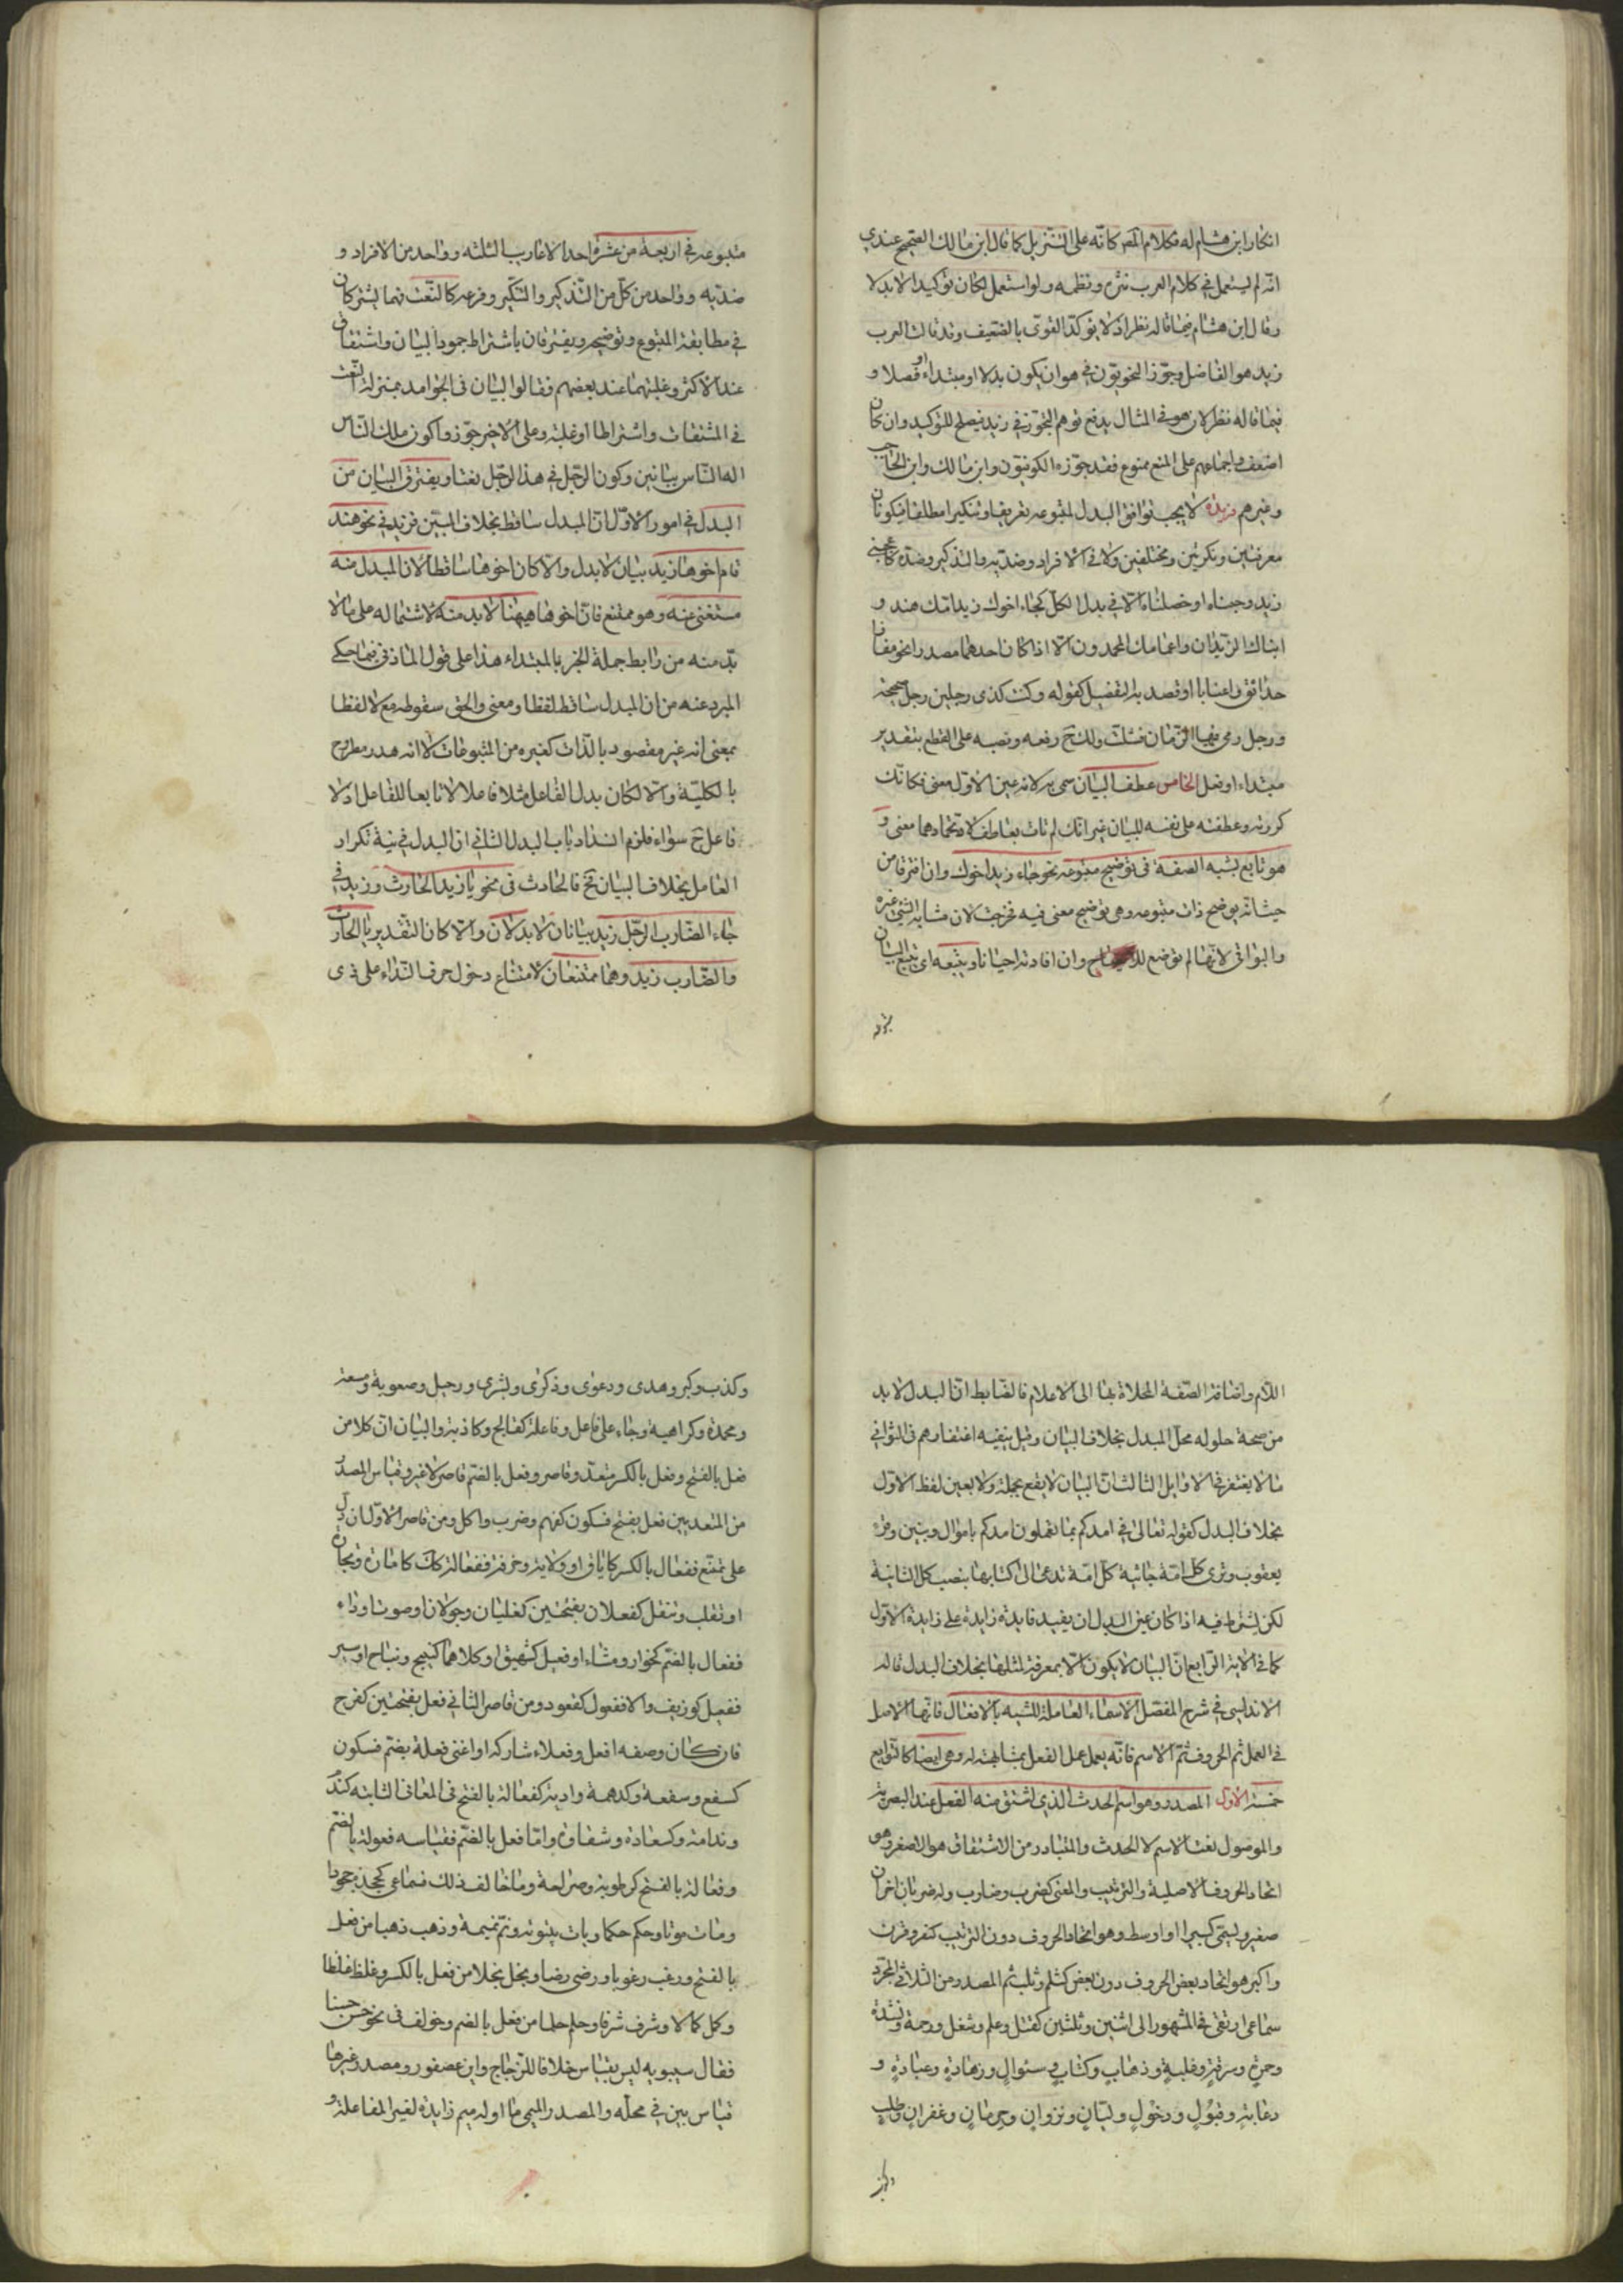 انكار ابن هشام له فكلام المصر كانه على التنزيل كما قال ابن مالك الصحيح عندي
انه لم يستعمل في كلام العرب نثره ونظمه ولو استعمل لكان توكيدا لا بدلا
وقال ابن هشام فيما قاله نظر اذ لا يؤكد القوى بالضعيف وقد قالت العرب
زيد هو الفاضل وجوز النحويون في هو ان يكون بدلا او مبتداء او فصلا و
فيما قاله نظر لان هو في المثال يدفع توهم التجوز في زيد فيصلح للتوكيد وان كان
اضعف واجماعهم على المنع ممنوع فقد جوزه الكوفيون وابن مالك وابن الحاجب
وغيرهم لا يجب توافق البدل لمتبوعه تعريفا وتنكيرا مطلقا فيكونان
معرفتين ونكرتين ومختلفين ولا في الافراد وضديه والتذكير وضده كاعجبني
زيد وجبناه او خصلتاه الا في بدل الكل كجاء اخوك زيد امتك هند و
ابناك الزيدان واعمامك المحمدون الا اذا كان احدهما مصدرا نحو مفازا
حدائق واعنابا او قصد به التفصيل كقوله وكنت كذي رجلين رجل صحيحة
ورجل رمى فيها الزمان فشلت ولك ح رفعه ونصبه على القطع بتقدير
مبتداء او فعل الخامس عطف البيان سمى به لانه عين الاول معنى فكانك
كررته وعطفته على نفسه للبيان غير انك لم تات بعاطف لاتحادهما معنى و
هو تابع يشبه الصفة في توضيح متبوعه نحو جاء زيد اخوك وان افترقا من
حيث انه يوضح ذات متبوعه وهي توضح معنى فيه فخرجت لان مشابه الشئ غيره
والبواقي لانها لم توضع للايضاح وان افادته احيانا ويتبعه اي يتبع البيان
متبوعه في اربعة من عشرة احد الاعاريب الثلثه وواحد من الافراد و
ضديه وواحد من كل من التذكير والتنكير وفرعه كالنعت فهما يشتركان
في مطابقة المتبوع وتوضيحه ويفترقان باشتراط جمود البيان واشتقاق
عند الاكثر وغلبتهما عند بعضهم فقالوا البيان في الجوامد بمنزلة النعت
في المشتقات واشتراطا او غلبة وعلى الاخير جوزوا كون ملك الناس
اله الناس بيانين وكون الرجل في هذا الرجل نعتا ويفترق البيان من
البدل في امور الاول ان المبدل ساقط بخلاف المبين فزيد في نحو هند
قام اخوها زيد بيان لا بدل والا كان اخوها ساقطا لان المبدل منه
مستغنى عنه وهو ممتنع فان اخوها هيهنا لا بد منه لاشتماله على ما لا
بد منه من رابط جملة الخبر بالمبتداء هذا على قول المازني فيما حكى
المبرد عنه من ان المبدل ساقط لفظا ومعنى والحق سقوطه مع لا لفظا
بمعنى انه غير مقصود بالذات كغيره من المتبوعات لا انه هدر مطروح
بالكلية والا لكان بدل الفاعل مثلا فاعلا لا تابعا للفاعل اذ لا
فاعل ح سواه فلزم انسداد باب البدل الثاني ان البدل في نية تكرار
العامل بخلاف البيان ح فالحادث في نحو يا زيد الحارث وزيد في
جاء الضارب الرجل زيد بيانان لا بدلان والا كان التقدير يا الحارث
والضارب زيد وهما ممتنعان لامتناع دخول حرف النداء على ذي
اللام واضافة الصفة المحلاة بها الى الاعلام فالضابط ان البدل لا بد
من صحة حلوله محل المبدل بخلاف البيان وقيل ينفيه اغتفارهم في الثواني
ما لا يغتفر في الاوايل الثالث ان البيان لا يقع بجملة ولا بعين لفظ الاول
بخلاف البدل كقوله تعالى في امدكم بما تعملون امدكم باموال وبنين وقرء
يعقوب وترى كل امة جاثية كل امة تدعى الى كتابها بنصب كل الثانية
لكن يشترط فيه اذا كان عين المبدل ان يفيد فايدة زايدة على زايدة الاول
كما في الاية الرابع ان البيان لا يكون الا بمعرفة لمثلها بخلاف البدل قاله
الاندلسي في شرح المفصل الاسماء العاملة المشبه بالافعال فانها الاصل
في العمل ثم الحروف ثم الاسم فانه يعمل عمل الفعل بمشابهته له وهي ايضا كالتوابع
خمسة الاول المصدر وهو اسم الحدث الذي اشتق منه الفعل عند البصريه
والموصول نعت الاسم لا الحدث والمتبادر من الاشتقاق هو الصغر وهو
اتحاد الحروف الاصلية والترتيب والمعنى كضرب وضارب وله ضربان اخران
صغير ويسمى كبيرا او اوسط وهو اتحاد الحروف دون الترتيب كنفر وفرن
واكبر هو اتحاد بعض الحروف دون بعض كثلم وثلب ثم المصدر من الثلاثي المجرد
سماعي ارتقى في المشهور الى اثنين وثلثين كقتل وعلم وشغل ورحمة ونشدة
وحمرة وسرقة وغلبة وذهاب وكتاب وسئوال وزهادة وعبادة و
دعابة وقبول ودخول وليان ونزوان وحرمان وغفران وطلب
وكذب وكبر وهدى ودعوى وذكرى وبشرى ورحيل وصعوبة وسعة
ومحمدة وكراهية وجاء على فاعل وفاعلة كفالج وكاذبة والبيان ان كلا من
فعل بالفتح وفعل بالكسر متعد وقاصر وفعل بالضم قاصر لا غير وقياس المصدر
من المتعديين فعل بفتح فسكون كفهم وضرب واكل ومن قاصر الاولان دل
على تمنع ففعال بالكسر كاياق او ولاية وحرفة ففعالة ككتابة كامارة وتجارة
او تقلب وتنقل كفعلان بفتحتين كغليان وجولان او صوتا وداء
ففعال بالضم كخوار ومشاء او فعيل كشهيق او كلاهما كنبيح ونباح او سير
ففعيل كوزيف والا ففعول كقعود ومن قاصر الثاني فعل بفتحتين كفرح
فان كان وصفه افعل وفعلاء شاركه او اغنى فعلة بضم فسكون
كسفع وسفعة وكدهمة وادبة كفعالة بالفتح في المعاني الثابته كندم
وندامة وكسعادة وشقاوة واما فعل بالضم فقياسه فعولة بالضم
وفعالة بالفتح كرطوبة وصراحة وما خالف ذلك فسماعي كجحد جحودا
ومات موتا وحكم حكما وبات بيتوتة ونم نميمة وذهب ذهبا من فعل
بالفتح ورغب رغوبا ورضى رضا وبخل بخلا من فعل بالكسر وغلظ غلظا
وكمل كمالا وشرف شرفا وحلم حلما من فعل بالضم وخولف في نحو حسن حسنا
فقال سيبويه ليس بقياس خلافا للزجاج وابن عصفور ومصدر غيرها
قياس يبين في محله والمصدر الميمي ما اوله ميم زايدة لغير المفاعلة و